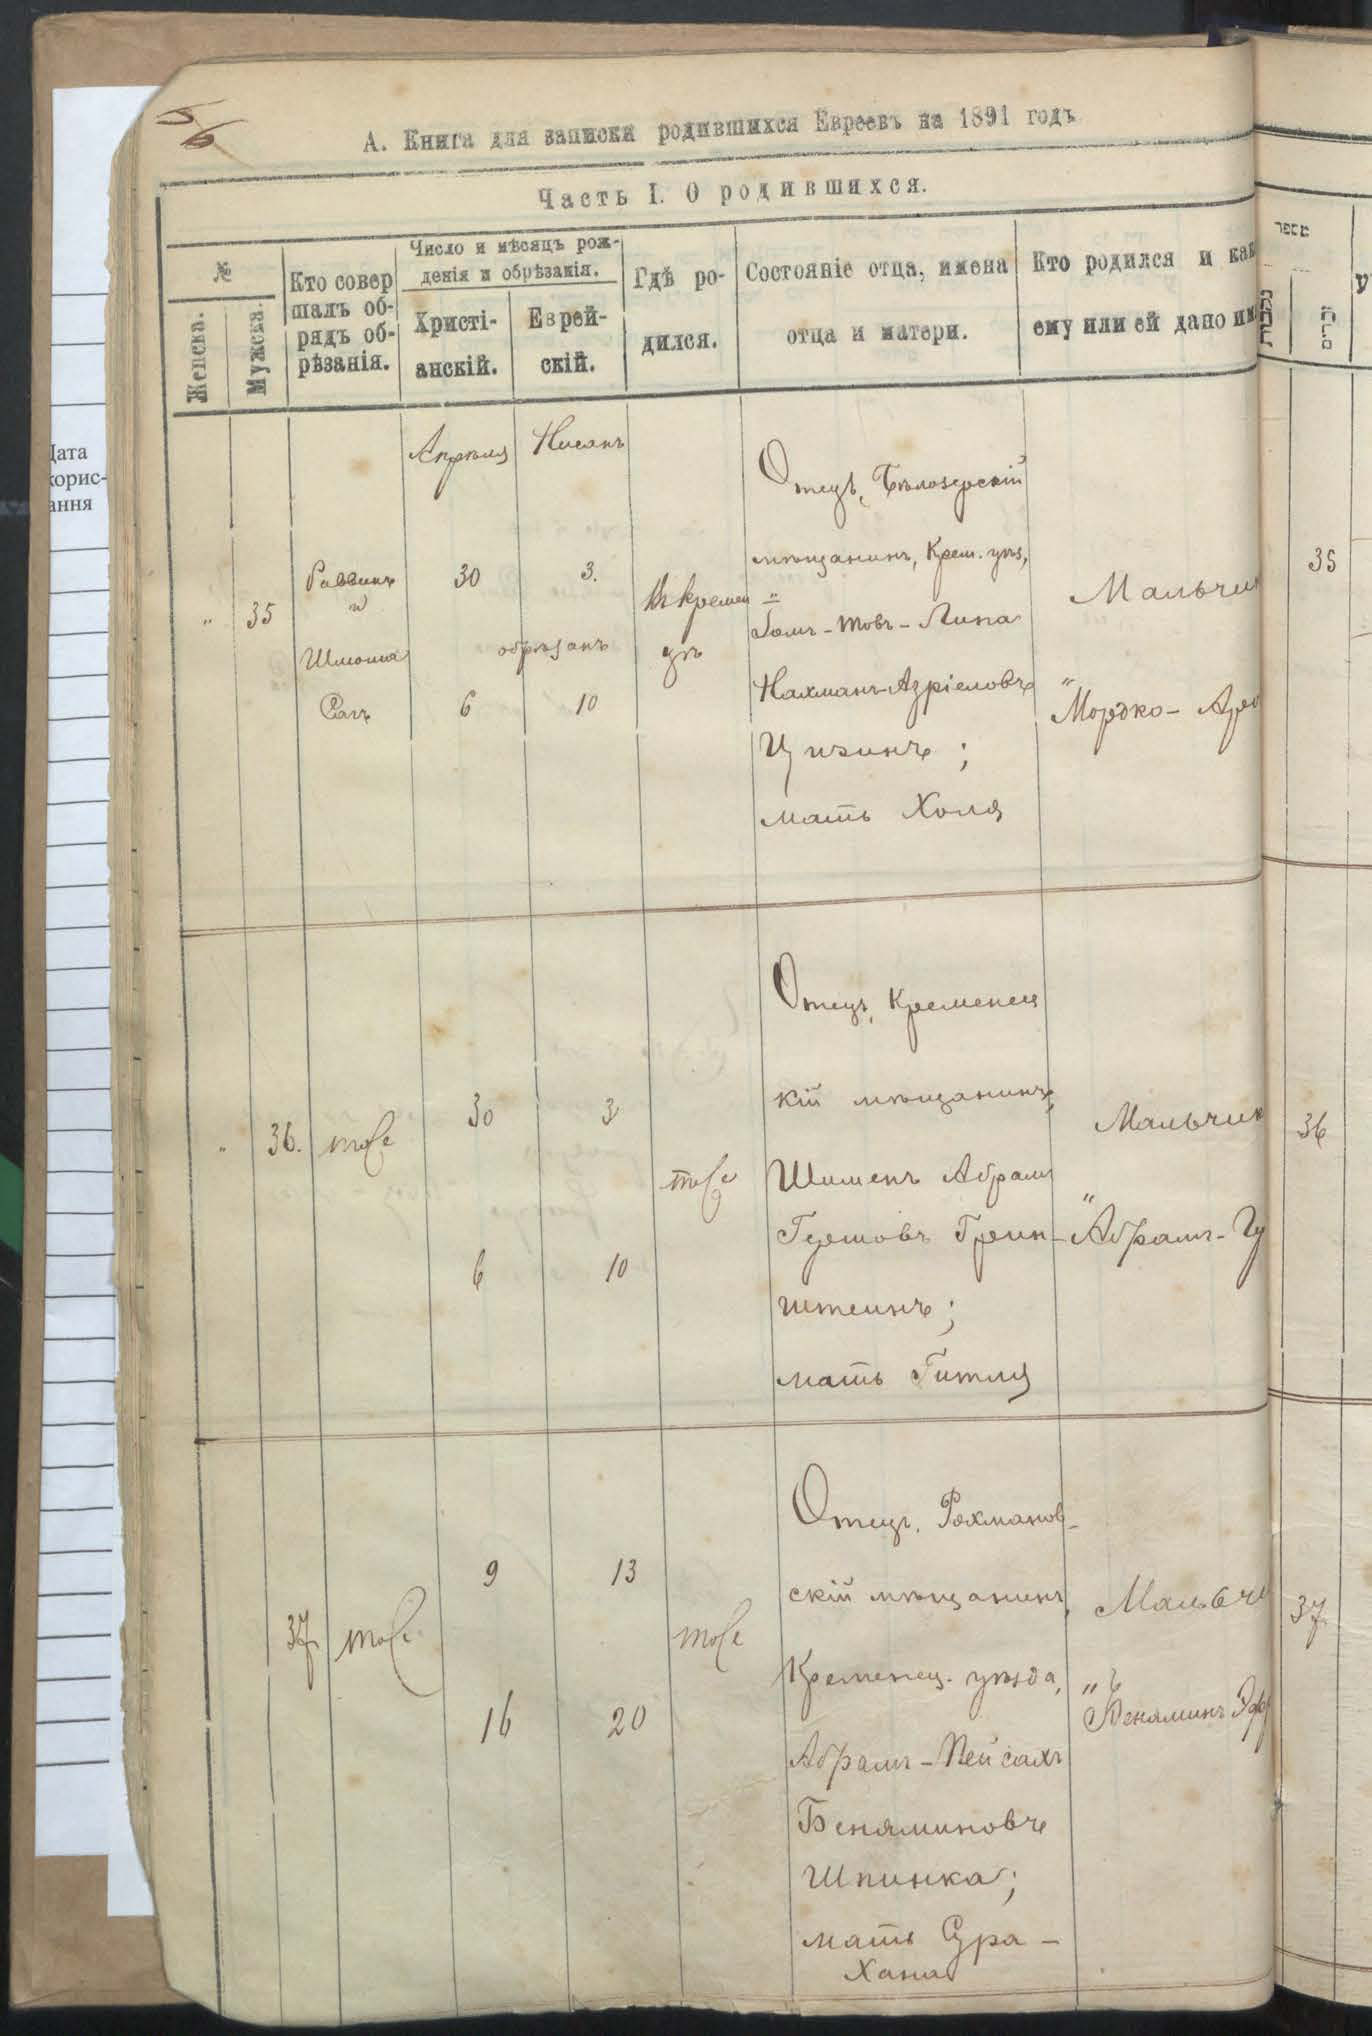 56
А. Книга для записки родившихся Евреевъ на 1891 годъ
Часть I. О родившихся.
№
Женска.
Мужска.
Кто совер
шалъ об-
рядъ об-
рѣзанія.
Число и мѣсяцъ рож-
денія и обрѣзанія.
Христі-
анскій.
Еврей-
скій.
Гдѣ ро-
дился.
Состояніе отца, имена
отца и матери.
Кто родился и как
ему или ей дано им
מספר
נקבות
זכרים
У
Дата
корис-
ання
Апрѣля
Нисанъ
"
35
Раввинъ
и
Шліома
30
3.
обрѣзанъ
6
10
Въ Кремен
цѣ
Отецъ, Бѣлозерскій
мѣщанинъ, Крем. уѣз,
Іомъ-Товъ-Липа
Нахманъ-Азріеловъ
Цизинъ;
мать Холя
Мальчик
"Мордко-Аро
35
"
36.
тоже
30
3
6
10
тоже
Отецъ, Кременец
кій мѣщанинъ,
Шименъ Абрам
Гершовъ Грин-
штеинъ;
мать Гитля
Мальчик
"Абрамъ-
36
37
тоже
9
13
16
20
тоже
Отецъ, Рохманов-
скій мѣщанинъ,
Кременец. уѣзда,
Абрамъ-Пейсахъ
Беняминовъ
Шпинка;
мать Сура-
Хана
Мальчи
"Беняминъ Эф
37